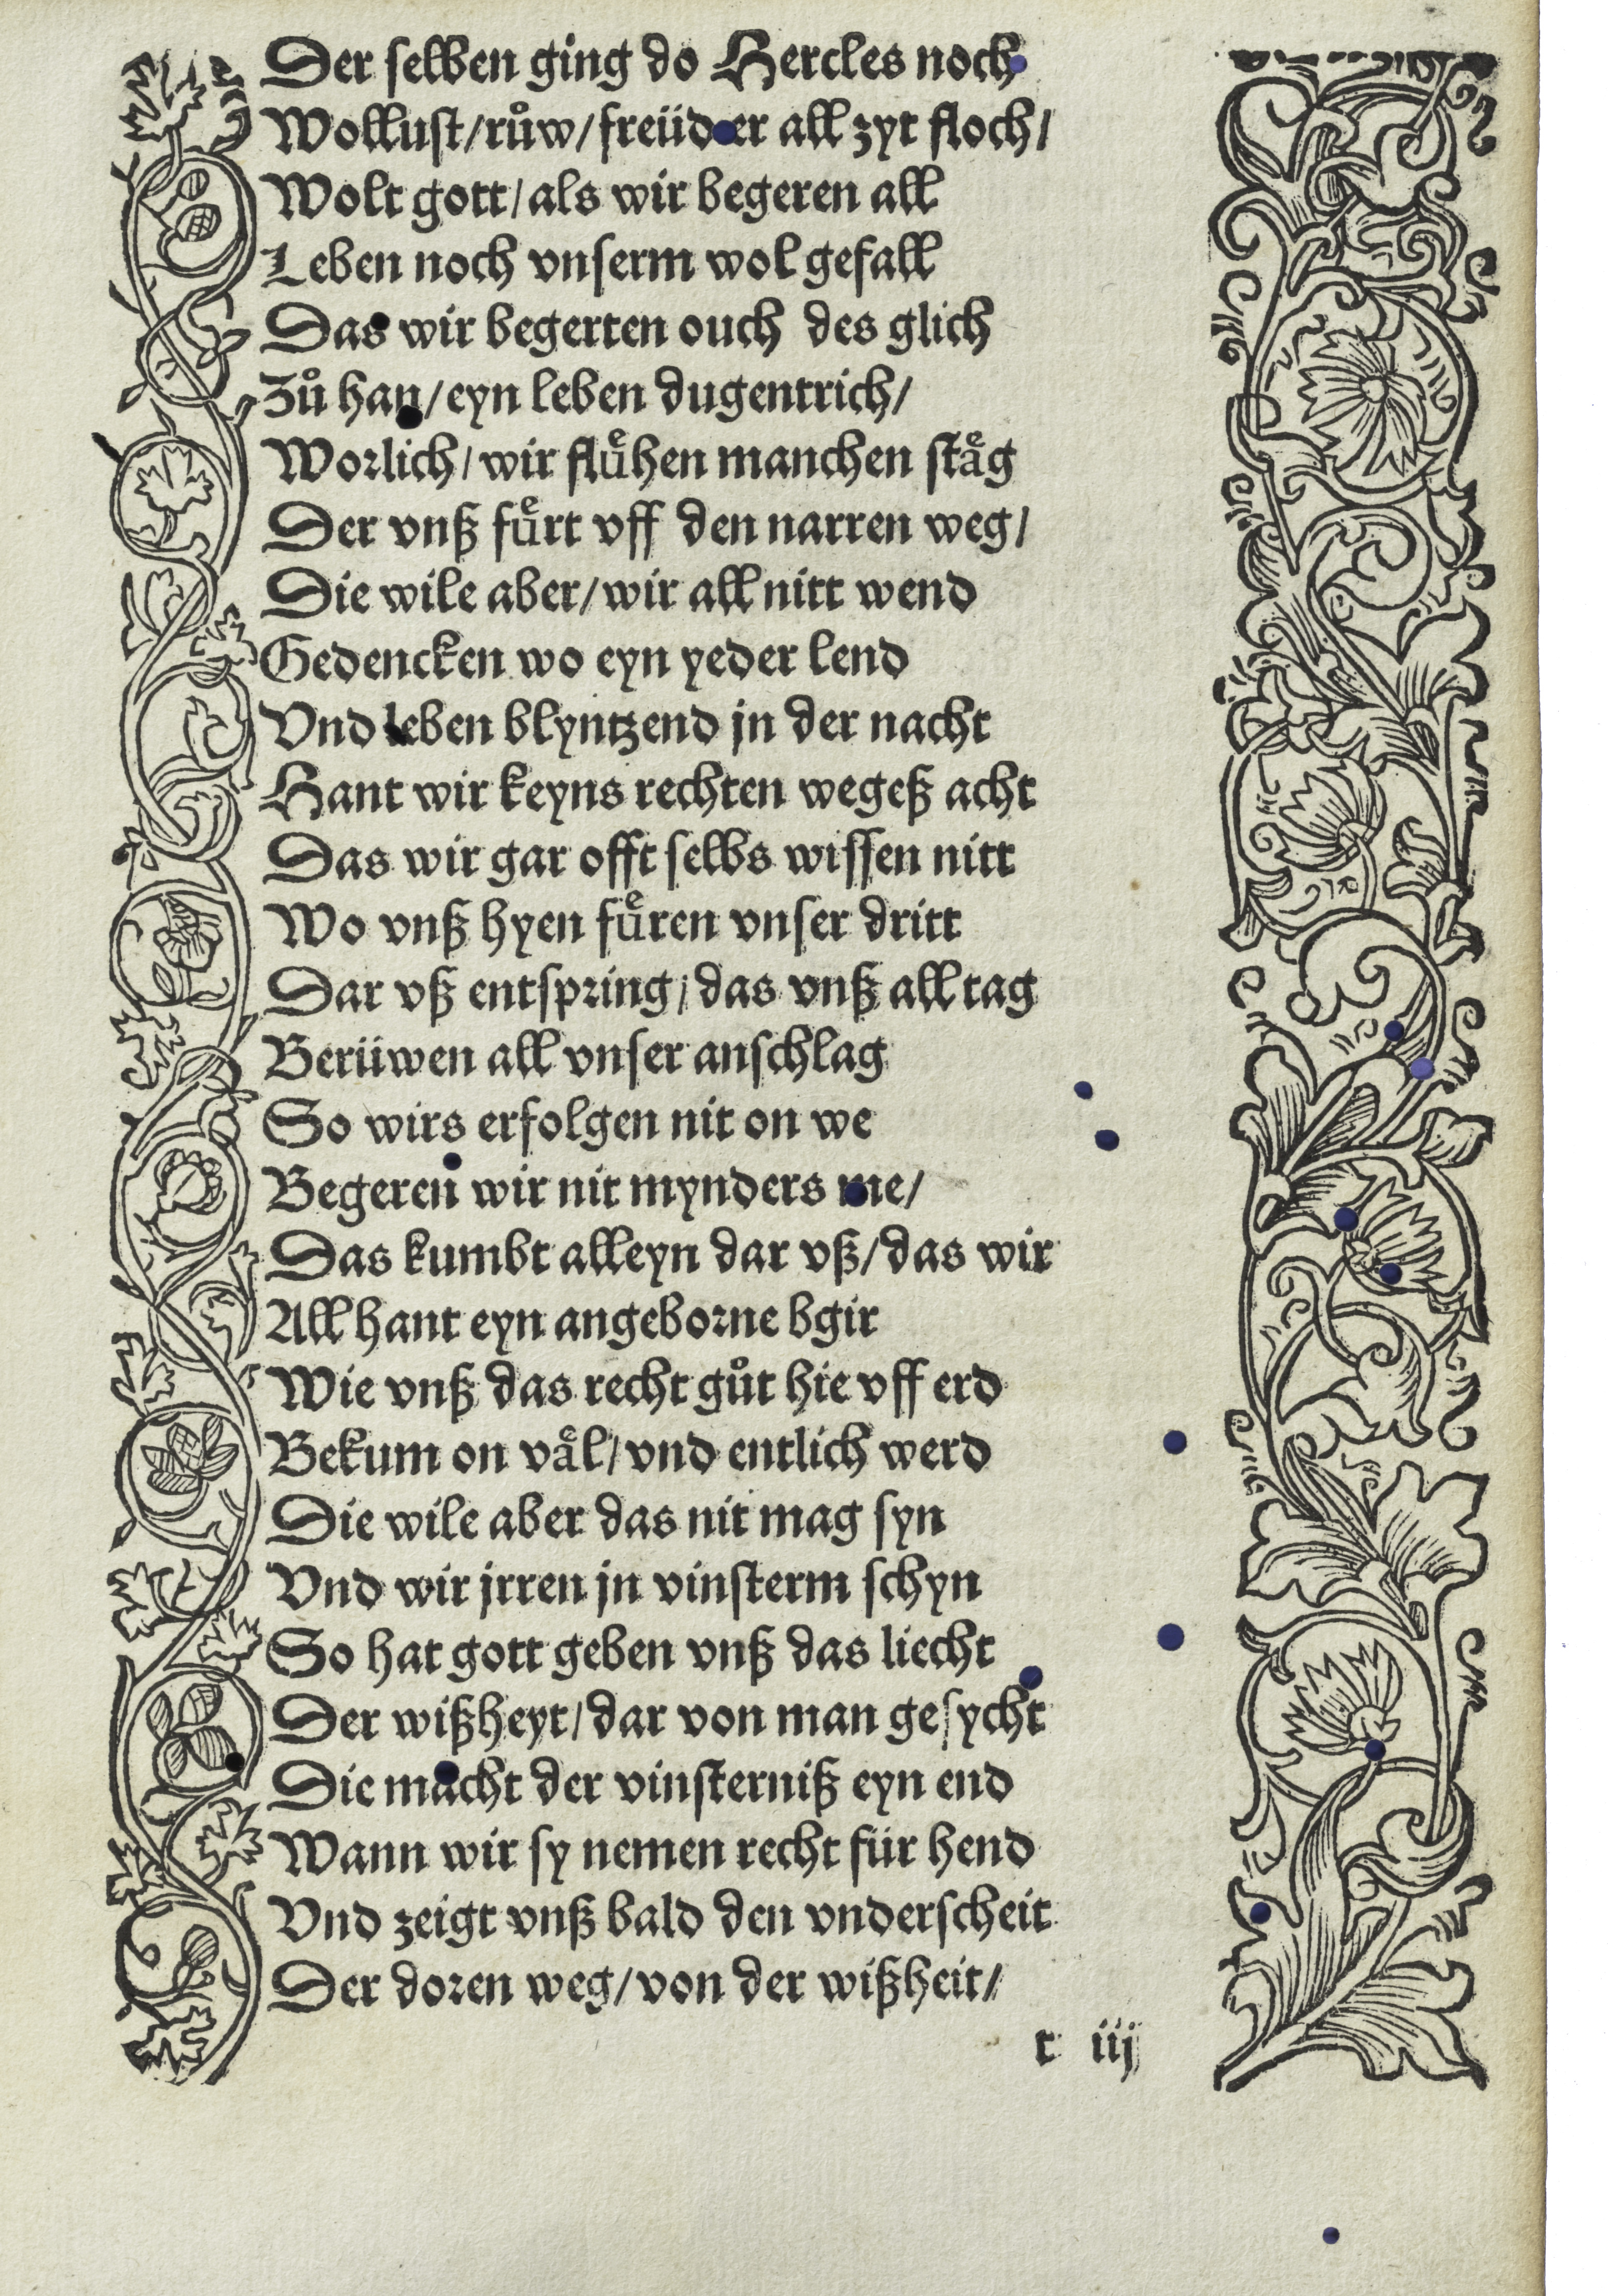 Der selben ging do Hercles noch
Wollust/růw/freüd er all zyt floch/
Wolt gott/als wir begeren all
Leben noch vnserm wol gefall
Das wir begerten ouch des glich
Zů han/eyn leben dugentrich/
Worlich/wir flu̇ͤhen manchen staͤg
Der vnß fuͤrt vff den narren weg/
Die wile aber/wir all nitt wend
Gedencken wo eyn yeder lend
Vnd leben blyntzend jn der nacht
Hant wir keyns rechten wegeß acht
Das wir gar offt selbs wissen nitt
Wo vnß hyen fuͤren vnser dritt
Dar vß entspring/das vnß all tag
Berüwen all vnser anschlag
So wirs erfolgen nit on we
Begeren wir nit mynders me/
Das kumbt alleyn dar vß/das wir
All hant eyn angeborne bgir
Wie vnß das recht gůt hie vff erd
Bekum on vaͤl/vnd entlich werd
Die wile aber das nit mag syn
Vnd wir jrren jn vinsterm schyn
So hat gott geben vnß das liecht
Der wißheyt/dar von man gesycht
Die macht der vinsterniß eyn end
Wann wir sy nemen recht für hend
Vnd zeigt vnß bald den vnderscheit
Der doren weg/von der wißheit/
r iij